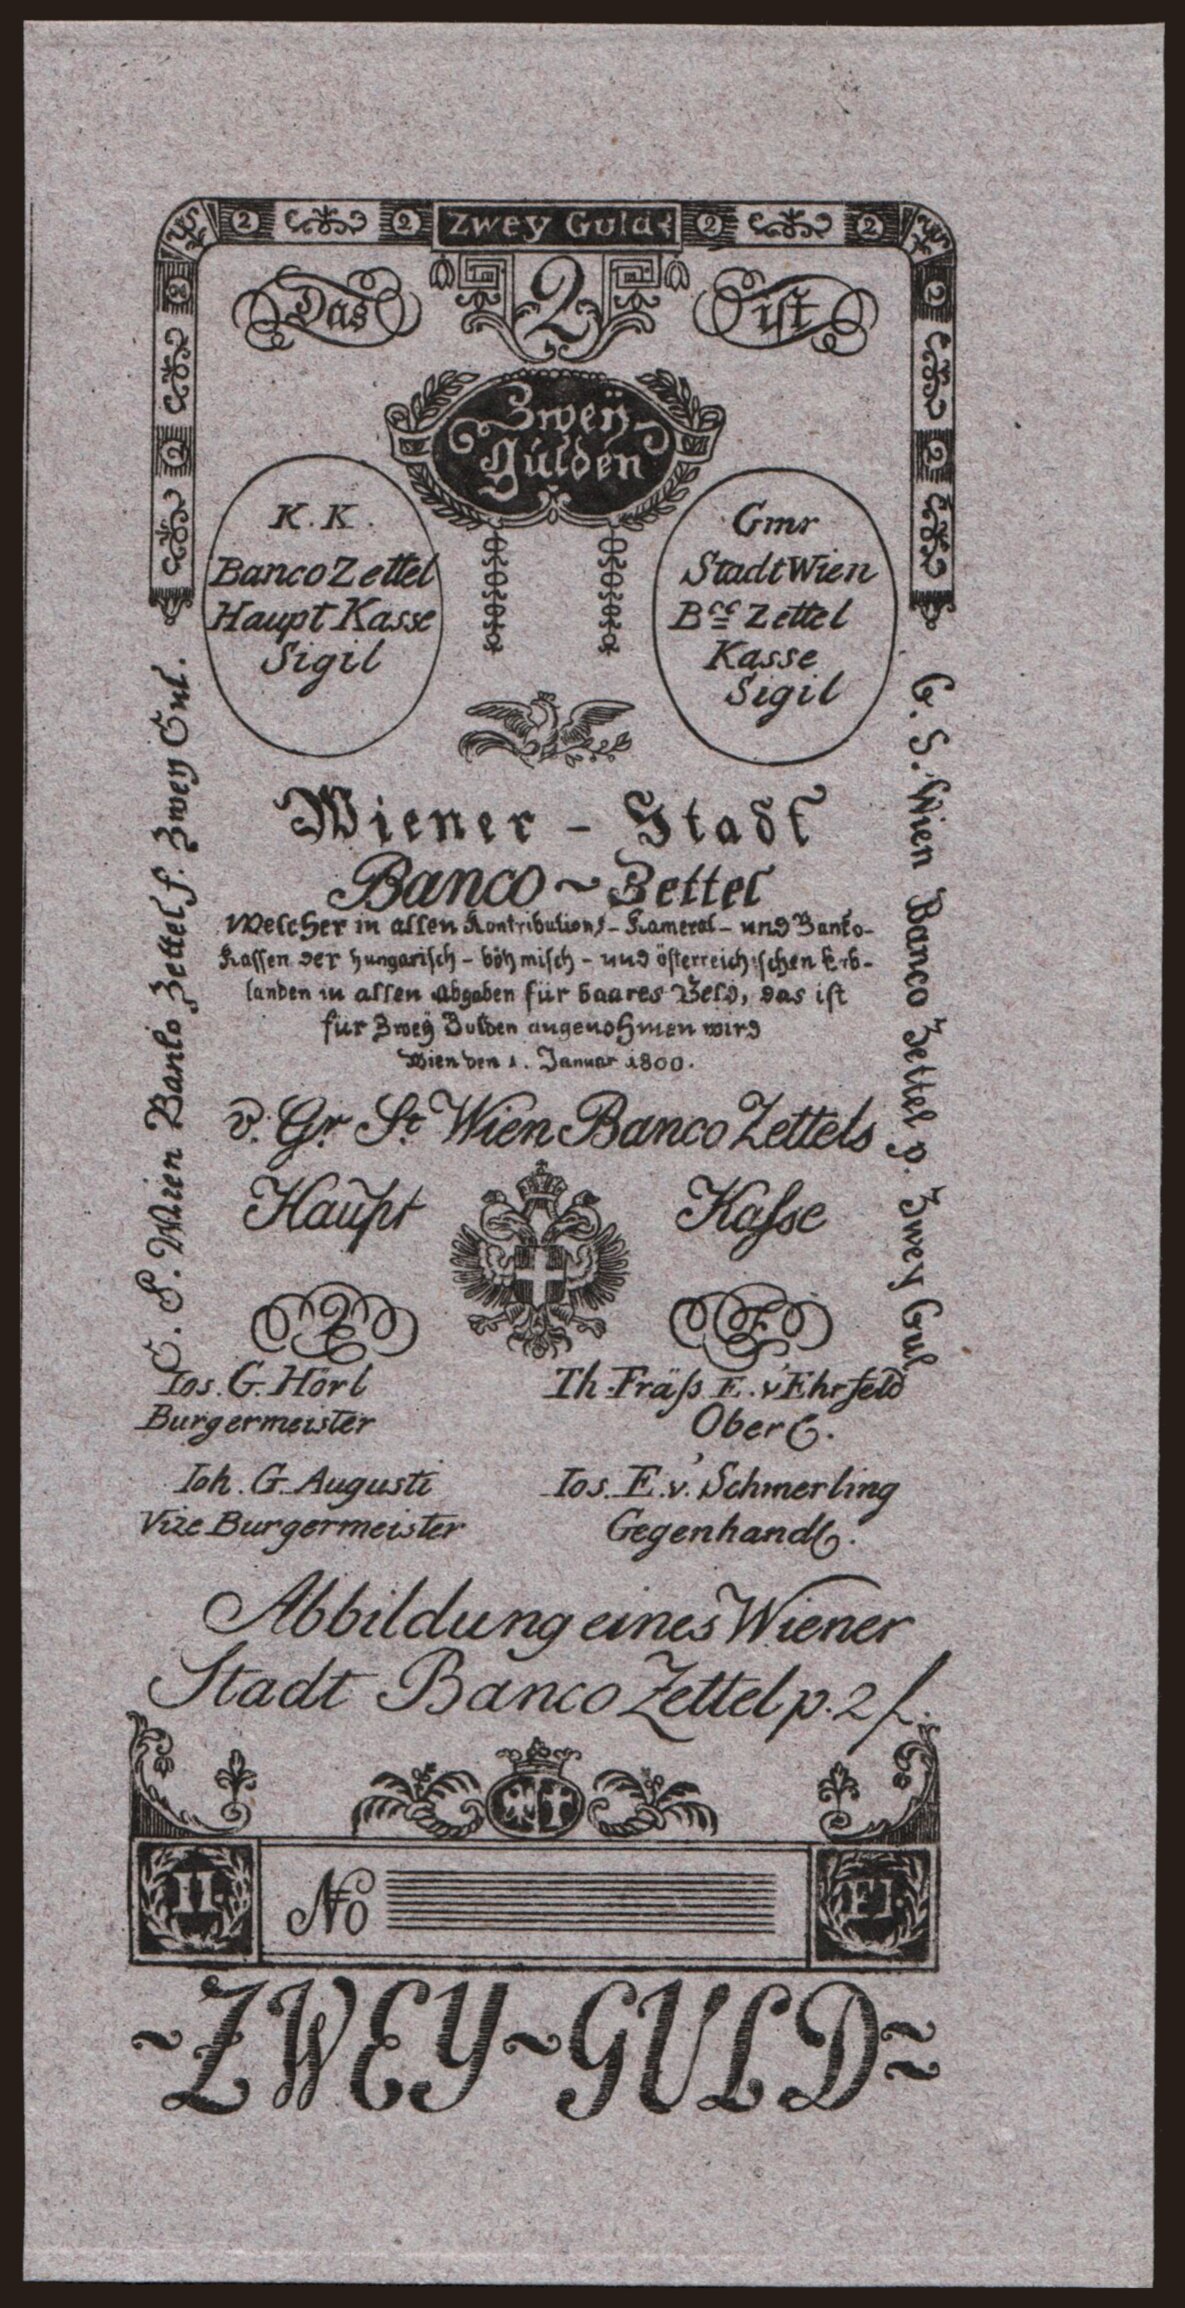 Zwey Guld
2 2 2 2
Das 2 ist
Zweÿ
Gulden
K. K.
Banco Zettel
Haupt Kasse
Sigil
Gmr
Stadt Wien
Bcc Zettel
Kasse
Sigil
Wiener - Stadt
Banco ~ Zettel
Welcher in allen Kontributions - Kameral - und Banko-
Kassen der hungarisch - böhmisch - und österreichischen Erb-
landen in allen Abgaben für baares Geld, das ist
für Zweÿ Gulden angenohmen wird
Wien den 1. Januar 1800.
v. Gr. St. Wien Banco Zettels
Haupt Kasse
C. S. Wien Banko Zettel f. Zwey Gul.
G. S. Wien Banco Zettel p. Zwey Gul
Ios. G. Hörl
Burgermeister
Th. Fräß E. v Ehrfeld
Ober C.
Ioh. G. Augusti
Vize Burgermeister
Ios. E. v. Schmerling
Gegenhandl.
Abbildung eines Wiener
Stadt Banco Zettel p. 2 f.
II No Fl
~ZWEY~GULD≈